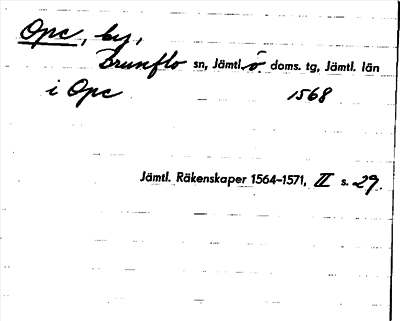 Opc, by,
Brunflo sn, Jämtl. ö. doms. tg, Jämtl. län
i Opc 1568
Jämtl. Räkenskaper 1564–1571, II s. 29.